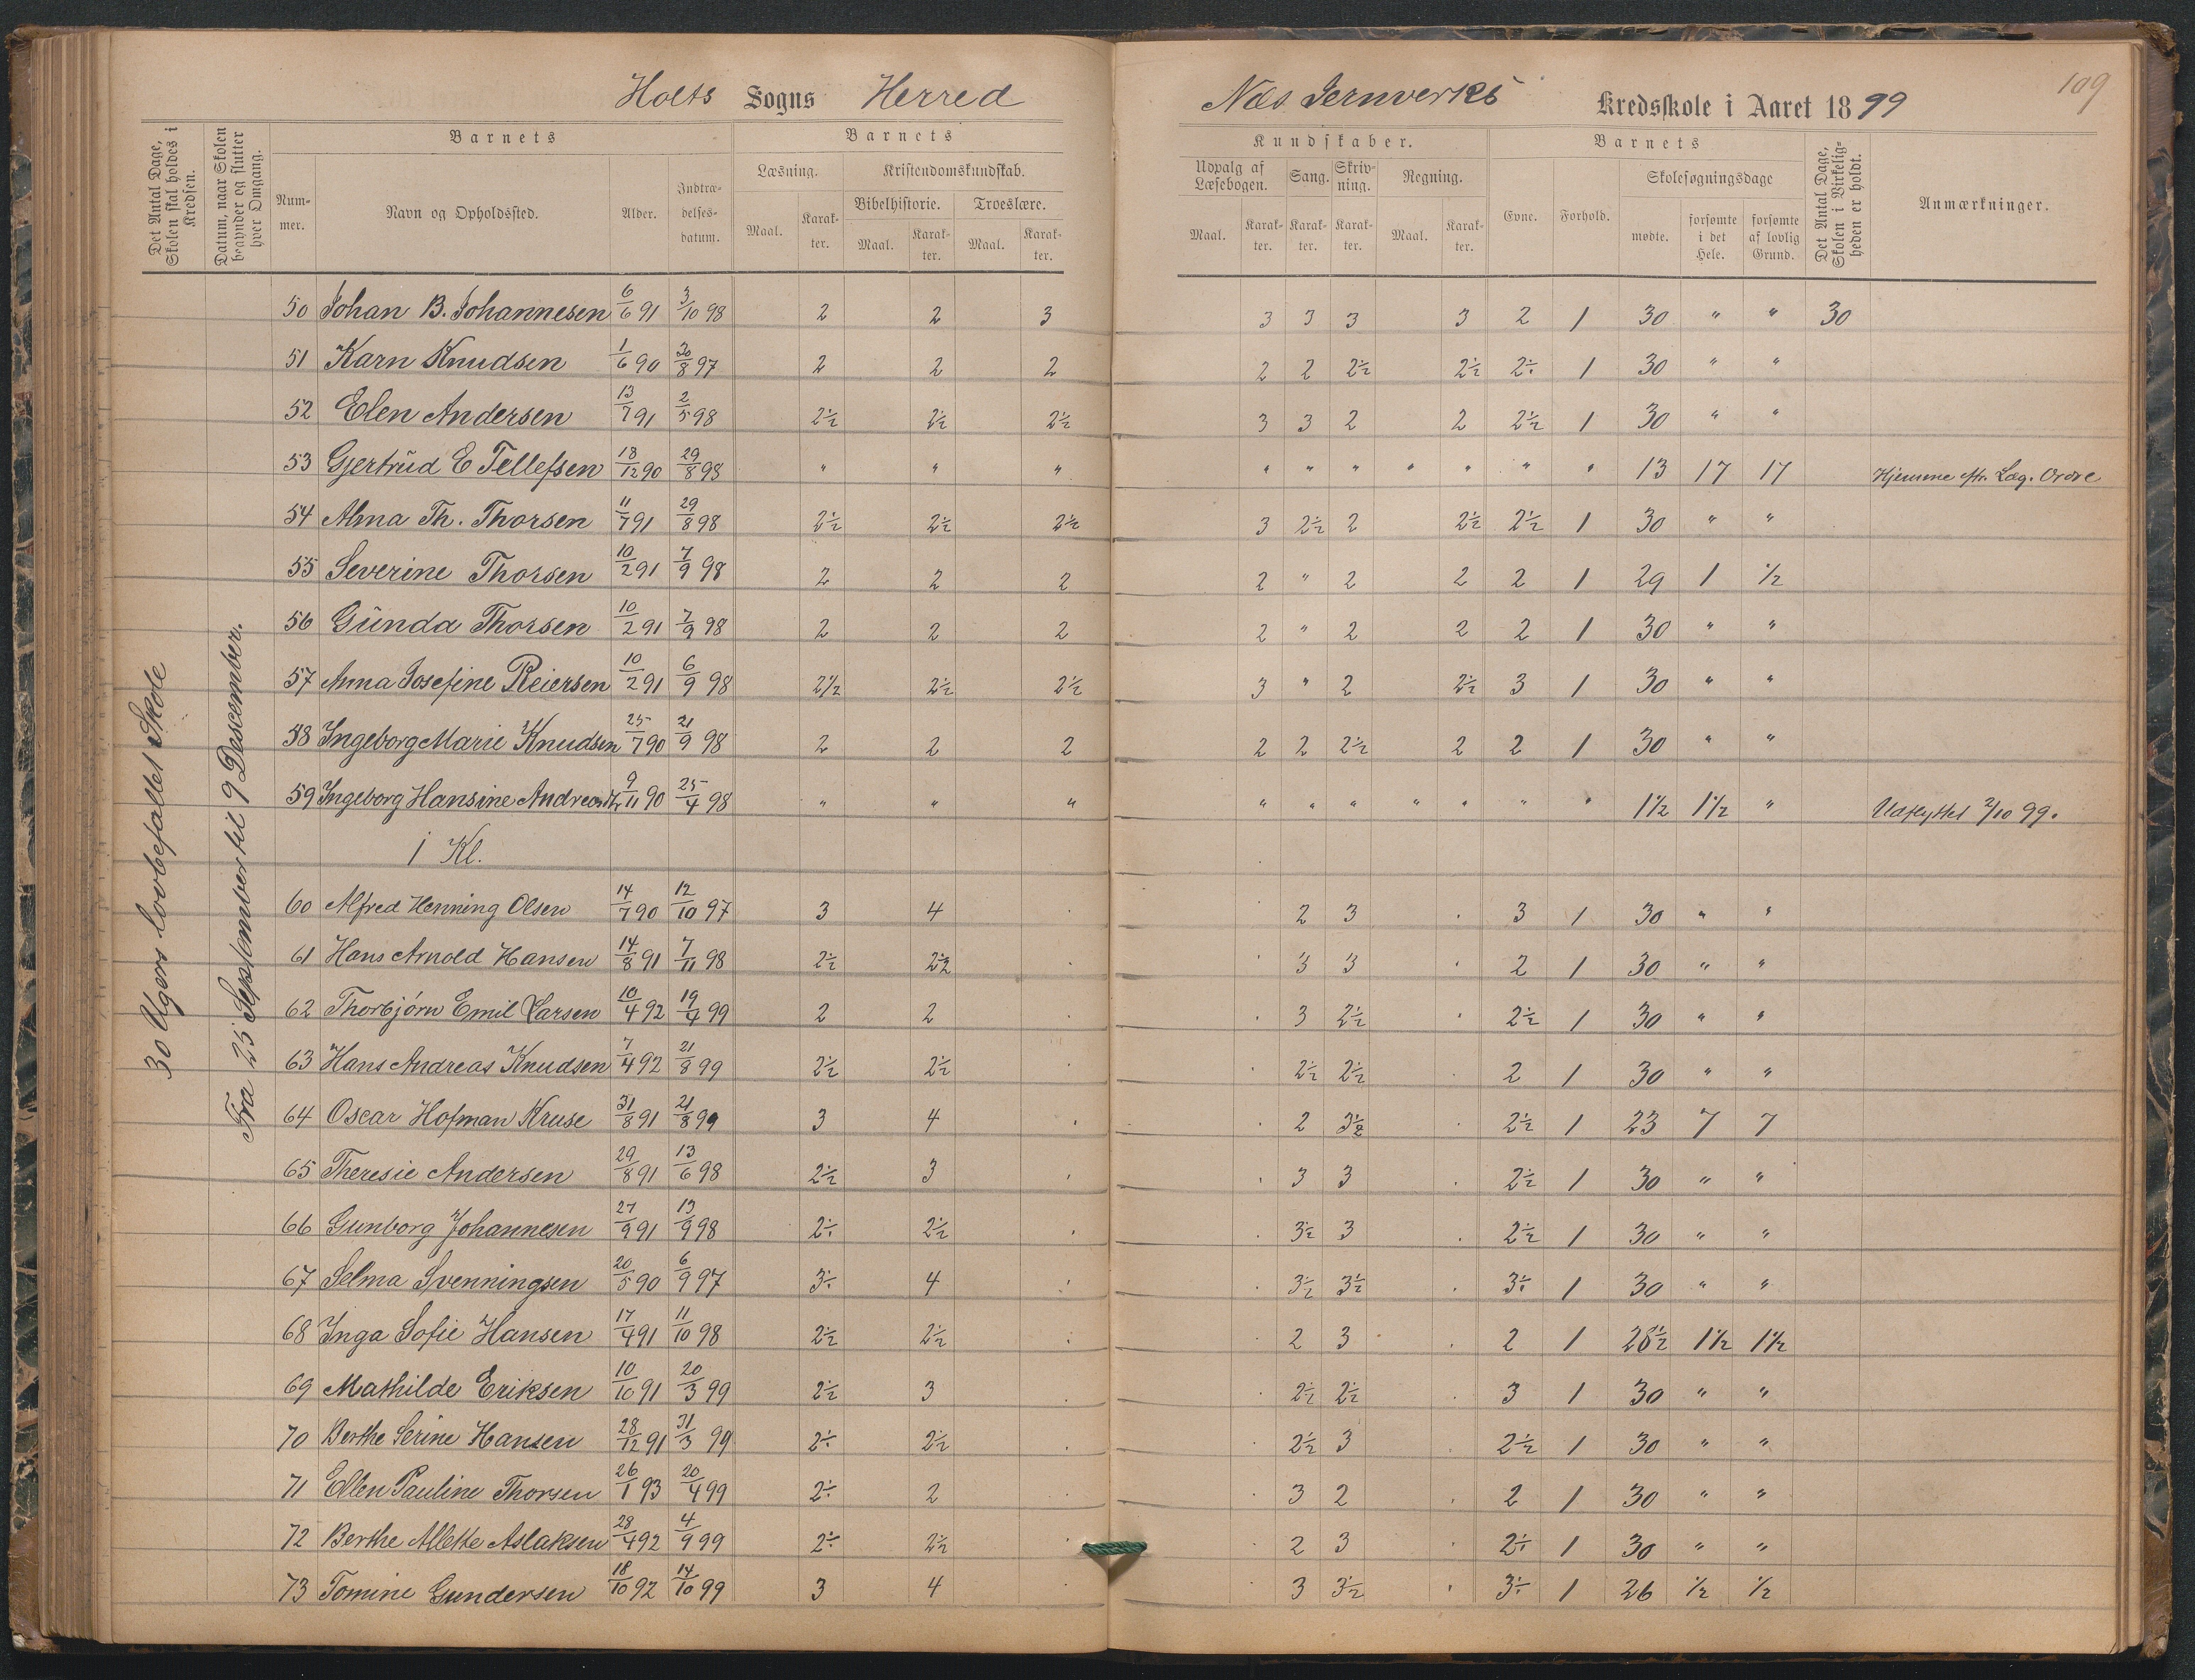 Holts Sogns Herred
Næs Jernverks Kredsskole i Aaret 1899
109
Det Antal Dage, Skolen skal holdes i Kredsen.
Datum, naar Skolen begynder og slutter hver Omgang.
Barnets
Nummer.
Navn og Opholdssted.
Alder.
Indtrædelsesdatum.
Barnets
Læsning.
Kristendomskundskab.
Bibelhistorie.
Troeslære.
Maal. Karakter. Maal. Karakter. Maal. Karakter.
Kundskaber.
Udvalg af Læsebogen.
Sang.
Skrivning.
Regning.
Maal. Karakter. Karakter. Karakter. Maal. Karakter.
Barnets
Evne. Forhold.
Skolesøgningsdage
mødte. forsømte i det Hele. forsømte af lovlig Grund.
Det Antal Dage, Skolen i Virkeligheden er holdt.
Anmærkninger.
30 Ugers lovbefallet Skole
Fra 25 September til 9 Descember.
50 Johan B. Johannesen 6/6 91 3/10 98 2 2 3 3 3 3 3 2 1 30 " " 30
51 Karn Knudsen 1/6 90 30/8 97 2 2 2 2 2 2½ 2½ 2÷ 1 30 " "
52 Elen Andersen 13/7 91 2/5 98 2½ 2½ 2½ 3 3 2 2 2½ 1 30 " "
53 Gjertrud E Tellefsen 18/12 90 29/8 98 " " " " " " " " " " 13 17 17 Hjemme eftr. Læg. Ordre
54 Alma Th. Thorsen 11/7 91 29/8 98 2½ 2½ 2½ 3 2½ 2 2½ 2½ 1 30 " "
55 Severine Thorsen 10/2 91 7/9 98 2 2 2 2 " 2 2 2 1 29 1 ½
56 Gunda Thorsen 10/2 91 7/9 98 2 2 2 2 " 2 2 2 1 30 " "
57 Anna Josefine Reiersen 10/2 91 6/9 98 2½ 2½ 2½ 3 " 2 2½ 3 1 30 " "
58 Ingeborg Marie Knudsen 25/7 90 21/9 98 2 2 2 2 2 2½ 2 2 1 30 " "
59 Ingeborg Hansine Andreasdtr 9/11 90 25/4 98 " " " " " " " " " " 1½ 1½ " Udflyttet 2/10 99.
1 Kl.
60 Alfred Henning Olsen 14/7 90 12/10 97 3 4 . 2 3 . 3 1 30 " "
61 Hans Arnold Hansen 14/8 91 7/11 98 2½ 2½ . . 3 3 . 2 1 30 " "
62 Thorbjørn Emil Larsen 10/4 92 19/4 99 2 2 . . 3 2½ . 2½ 1 30 " "
63 Hans Andreas Knudsen 7/4 92 21/8 99 2½ 2½ . . 2½ 2½ . 2 1 30 " "
64 Oscar Hofman Kruse 31/8 91 21/8 99 3 4 . . 2 3½ . 2½ 1 23 7 7
65 Theresie Andersen 29/8 91 13/6 98 2½ 3 . . 3 3 . 2½ 1 30 " "
66 Gunborg Johannesen 27/9 91 13/9 98 2÷ 2½ . . 3½ 3 . 2½ 1 30 " "
67 Selma Svenningsen 20/5 90 6/9 97 3÷ 4 . . 3½ 3½ . 3÷ 1 30 " "
68 Inga Sofie Hansen 17/4 91 11/10 98 2½ 2½ . . 2 3 . 2 1 28½ 1½ 1½
69 Mathilde Eriksen 10/10 91 20/3 99 2½ 3 . . 2½ 2½ . 3 1 30 " "
70 Berthe Serine Hansen 28/12 91 31/3 99 2÷ 2½ . . 2½ 3 . 2½ 1 30 " "
71 Ellen Pauline Thorsen 26/1 93 20/4 99 2÷ 2 . . 3 2 . 2 1 30 " "
72 Berthe Allette Aslaksen 28/4 92 4/9 99 2÷ 2½ . . 2 3 . 2÷ 1 30 " "
73 Tomine Gundersen 18/10 92 14/10 99 3 4 . . 3 3½ . 3÷ 1 26 ½ ½